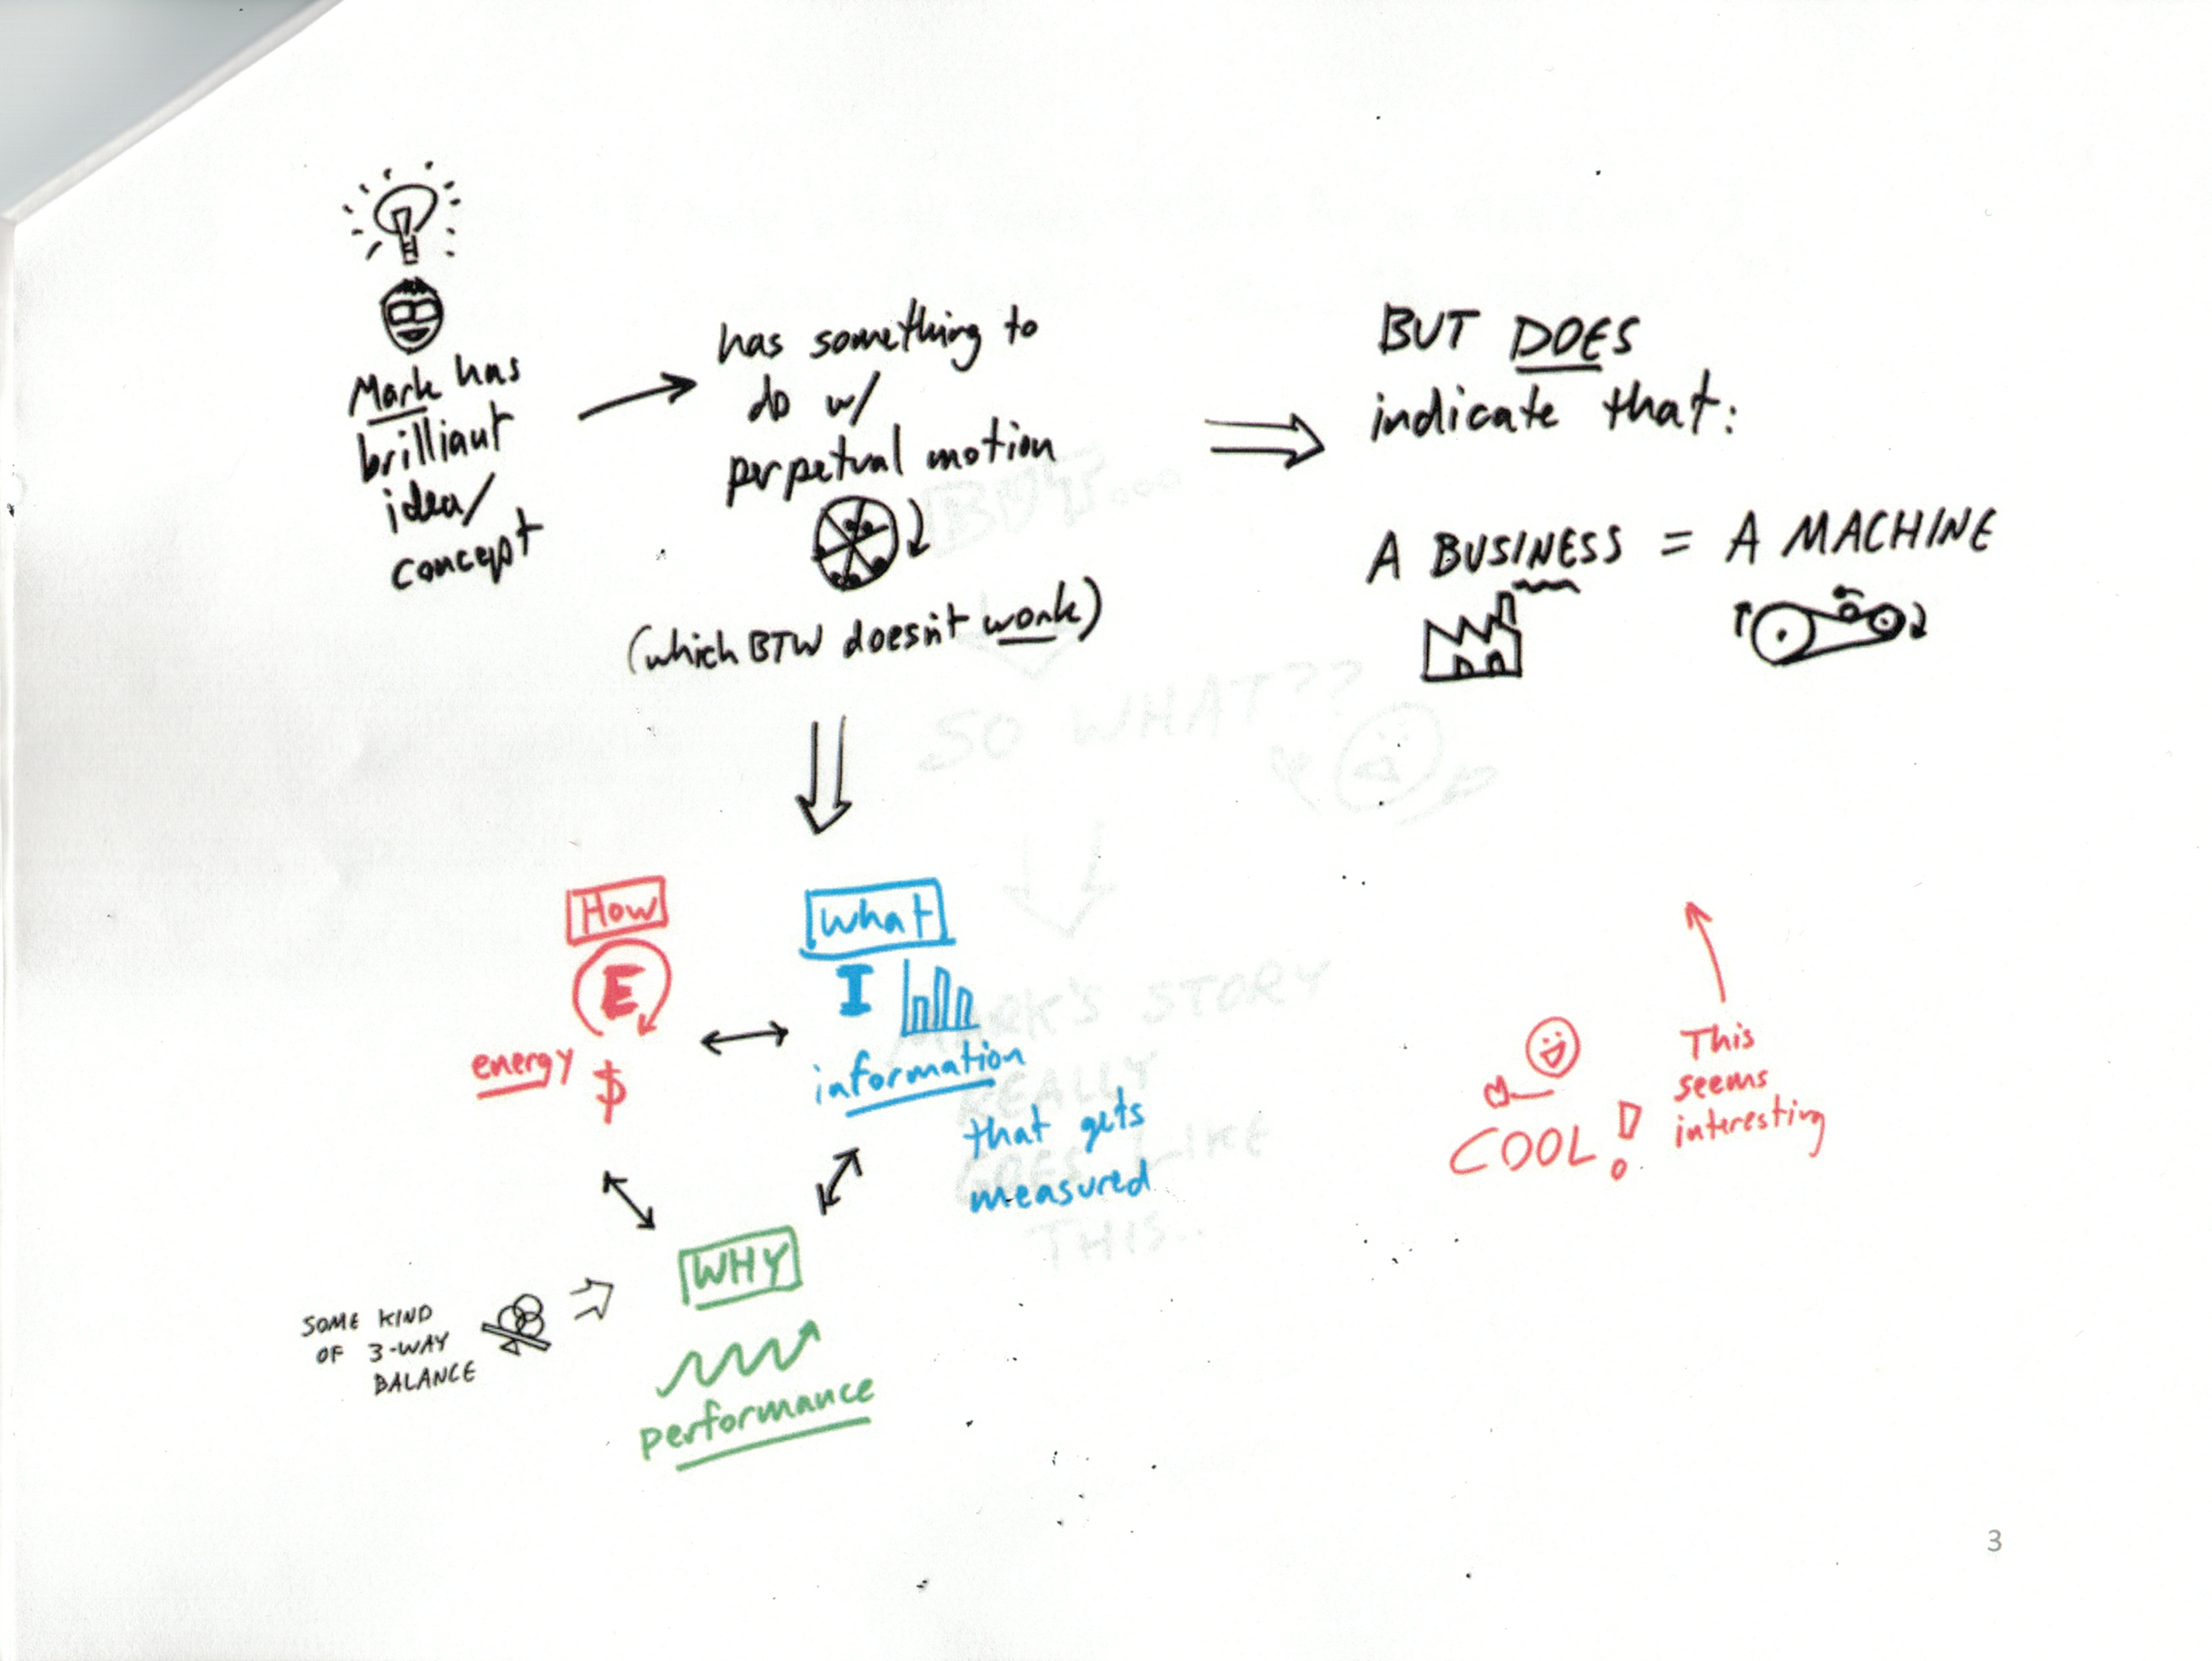 Mark has
brilliant
idea/
concept
has something to
do w/
perpetual motion
(which BTW doesn't work)
BUT DOES
indicate that:
A BUSINESS = A MACHINE
How
E
energy
$
What
I
information
that gets
measured
WHY
performance
SOME KIND
OF 3-WAY
BALANCE
COOL!
This
seems
interesting
BUT...
SO WHAT??
MARK'S STORY
REALLY
GOES LIKE
THIS...
3